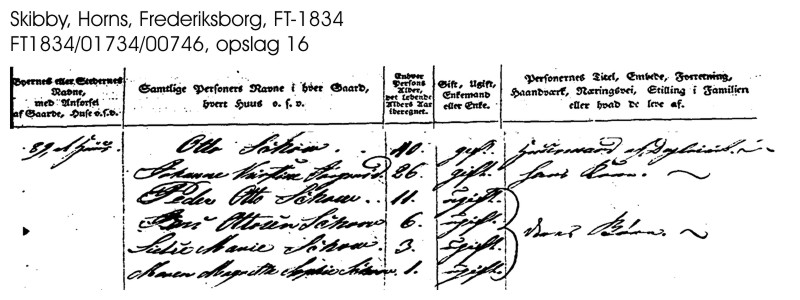 Skibby, Horns, Frederiksborg, FT-1834
FT1834/01734/00746, opslag 16
Byernes eller Stedernes Navne, med Anførsel af Gaarde, Huse o.s.v.
Samtlige Personers Navne i hver Gaard, hvert Huus o.s.v.
Enhver Persons Alder, det løbende Alders Aar iberegnet.
Gift, Ugift, Enkemand eller Enke.
Personernes Titel, Embede, Forretning, Haandværk, Næringsvei, Stilling i Familien eller hvad de leve af.
Otto Schow. 40. gift.
Johanne 26. gift. hans Kone.
Peder Otto Schow. 11. ugift.
Ottosen Schow 6. ugift. deres Børn.
Sidse Marie Schow. 3. ugift.
Maren Magrethe Sophie Schow 1. ugift.